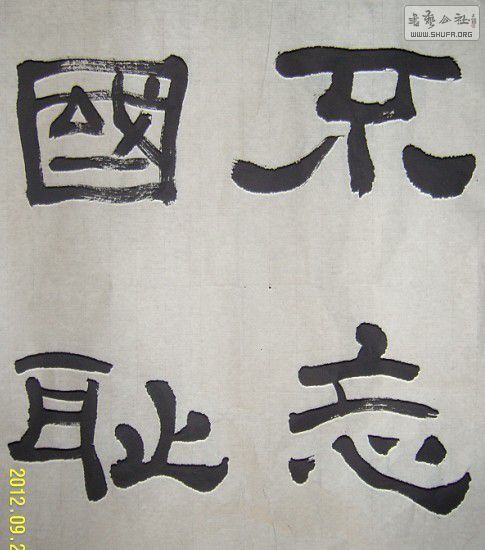 不忘
國耻
书艺公社
WWW.SHUFA.ORG
2012.09.2